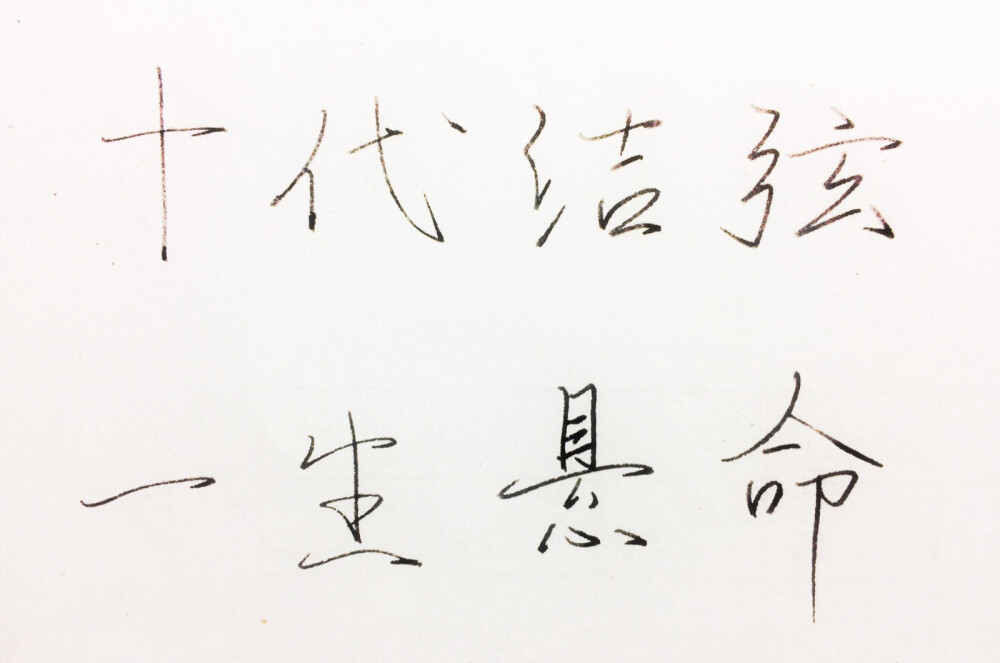 十代结弦
一生悬命